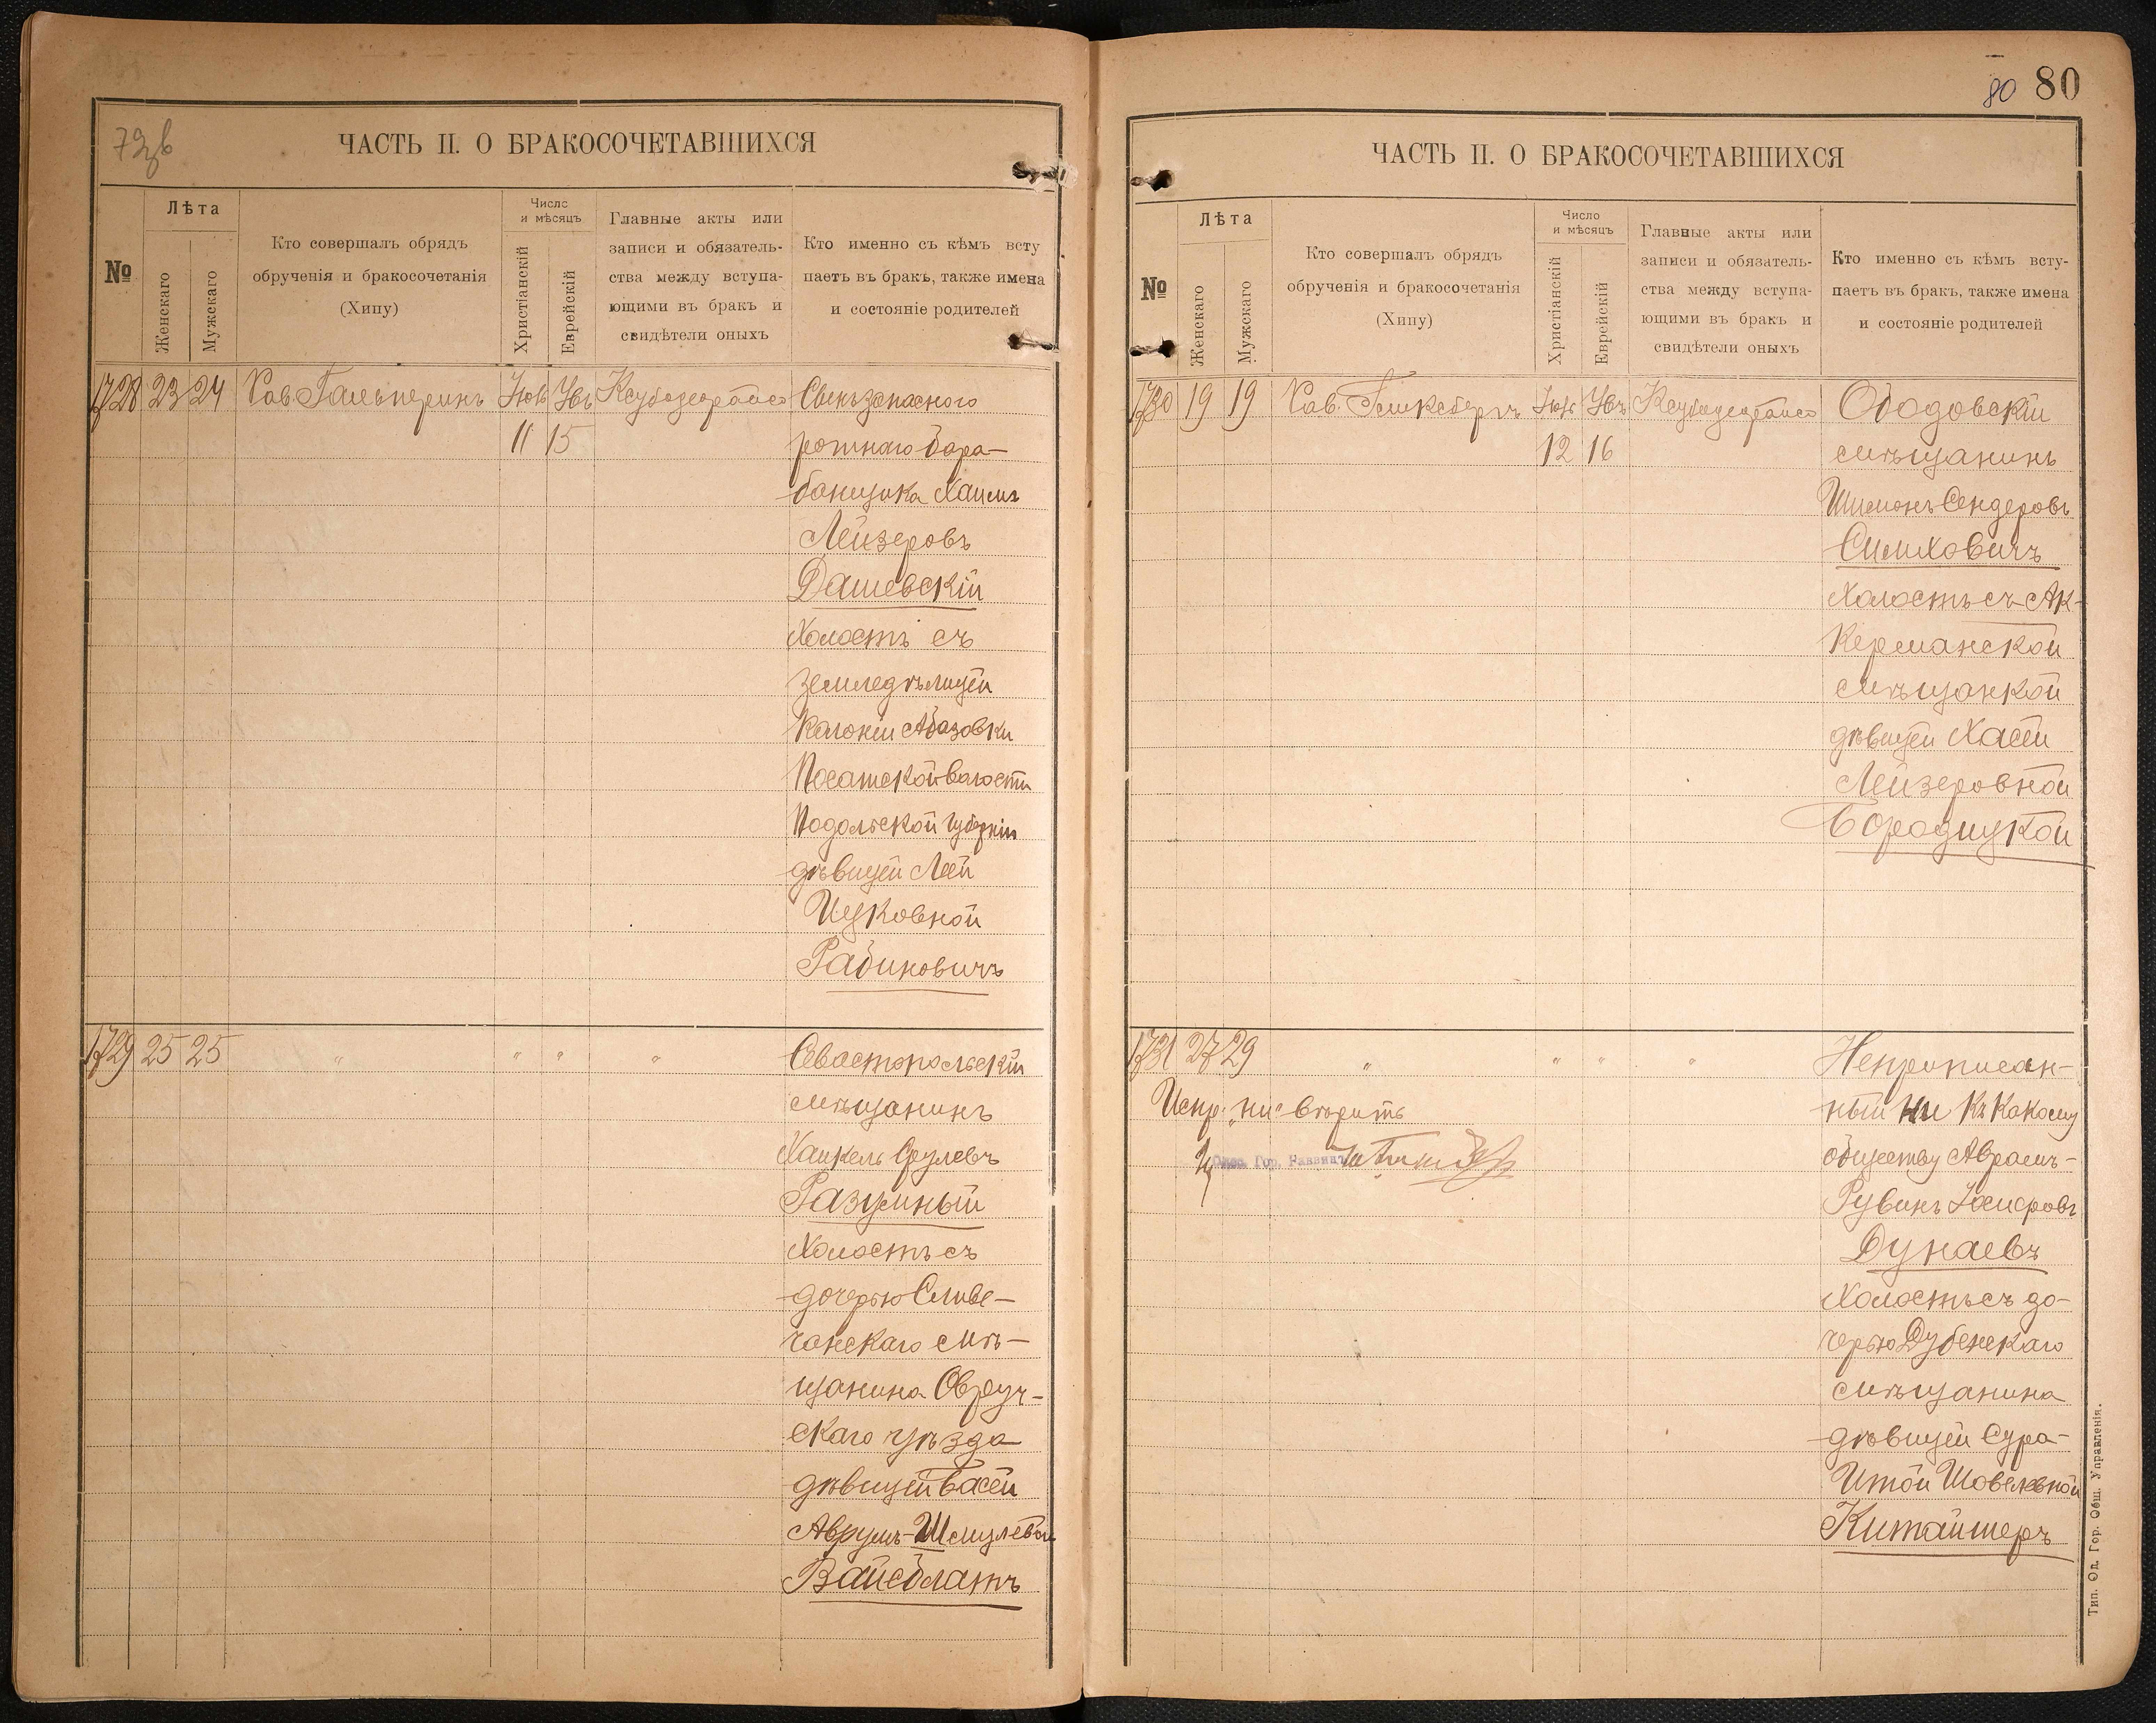 79 об
ЧАСТЬ II. О БРАКОСОЧЕТАВШИХСЯ
№
Лѣта
Женскаго
Мужскаго
Кто совершалъ обрядъ
обрученія и бракосочетанія
(Хипу)
Число
и мѣсяцъ
Христіанскій
Еврейскій
Главные акты или
записи и обязатель-
ства между вступа-
ющими въ бракъ и
свидѣтели оныхъ
Кто именно съ кѣмъ всту
паетъ въ бракъ, также имена
и состояніе родителей
1728 23 24 Рав. Гальперинъ
11 15
Сынъ запаснаго
ротнаго бара-
банщика Хаимъ
Лейзеровъ
Дашевскій
холостъ съ
земледѣлицей
колоніи Абазовки
волости
Подольской губерніи
дѣвицей Леей
Ицковной
Рабиновичъ
1729 25 25 " " " "
Севастопольскій
мѣщанинъ
Хаикель Срулевъ
Разумный
холостъ съ
дочерью Слове-
чанскаго мѣ-
щанина Овруч-
скаго уѣзда
дѣвицей Басей
Аврумъ-Шмулевой
Вайсблатъ
80 80
ЧАСТЬ II. О БРАКОСОЧЕТАВШИХСЯ
№
Лѣта
Женскаго
Мужскаго
Кто совершалъ обрядъ
обрученія и бракосочетанія
(Хипу)
Число
и мѣсяцъ
Христіанскій
Еврейскій
Главные акты или
записи и обязатель-
ства между вступа-
ющими въ бракъ и
свидѣтели оныхъ
Кто именно съ кѣмъ всту-
паетъ въ бракъ, также имена
и состояніе родителей
1730 19 19 Рав.
12 16
Ободовскій
мѣщанинъ
Шимонъ Сендеровъ
Симховичъ
холостъ съ Ак-
керманской
мѣщанкой
дѣвицей Хасей
Лейзеровной
Бородицкой
1731 27 29 " " " "
Испр. "ни" вѣрить
Одес. Гор. Раввинъ
Неприписан-
ный ни къ какому
обществу Аврамъ-
Рувинъ
Дунаевъ
холостъ съ до-
черью Дубенскаго
мѣщанина
дѣвицей Сура-
Итой Шовелевной
Китайшеръ
Тип. Од. Гор. Общ. Управленія.